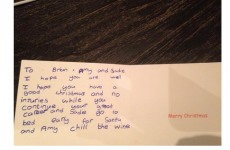 To Brian + Amy and Sute
I hope you are well
I hope you have a
good christmas and no
injuries while you
continue your great
career and go to
bed early for Santa
and Amy chill the wine
Merry Christmas